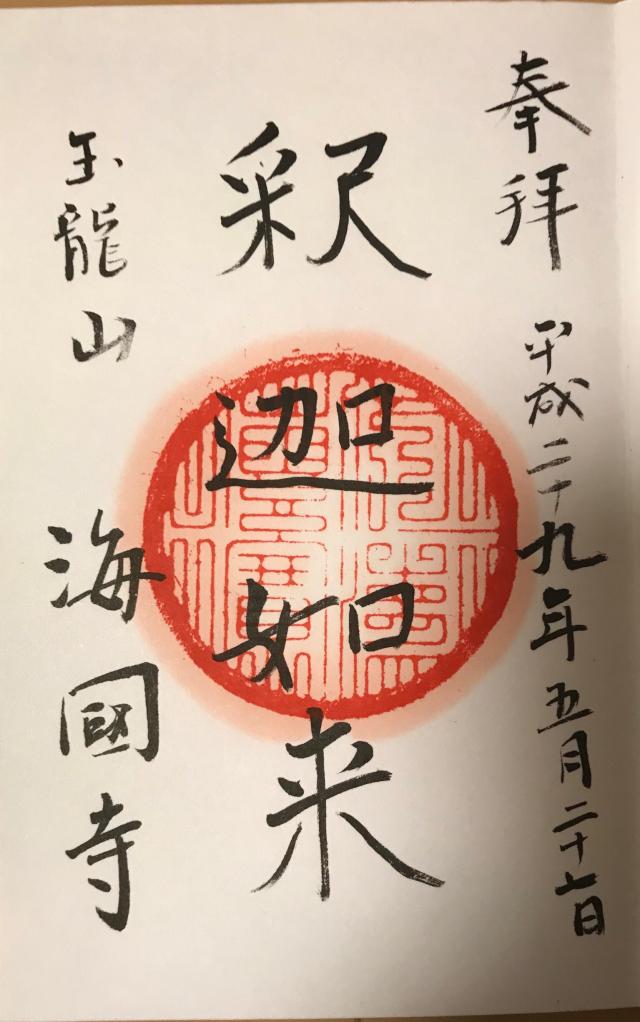 奉拝 平成二十九年五月二十七日
釈迦如来
玉龍山 海國寺